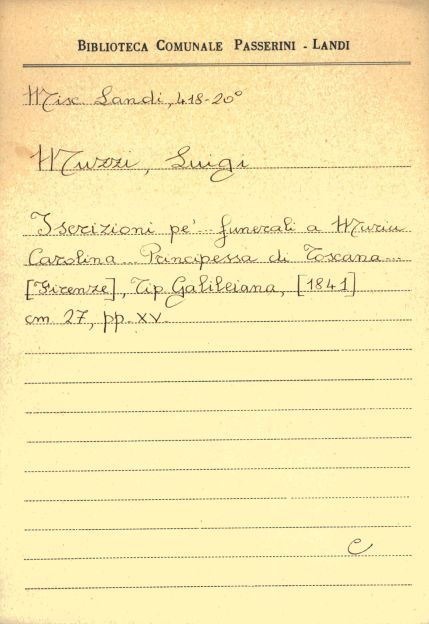 BIBLIOTECA COMUNALE PASSERINI - LANDI
Misc. Landi, 418-20°
Muzzi, Luigi
Iscrizioni pe'... funerali a Maria
Carolina... Principessa di Toscana...
[Firenze], Tip. Galileiana, [1841]
cm 27, pp. XV.
C